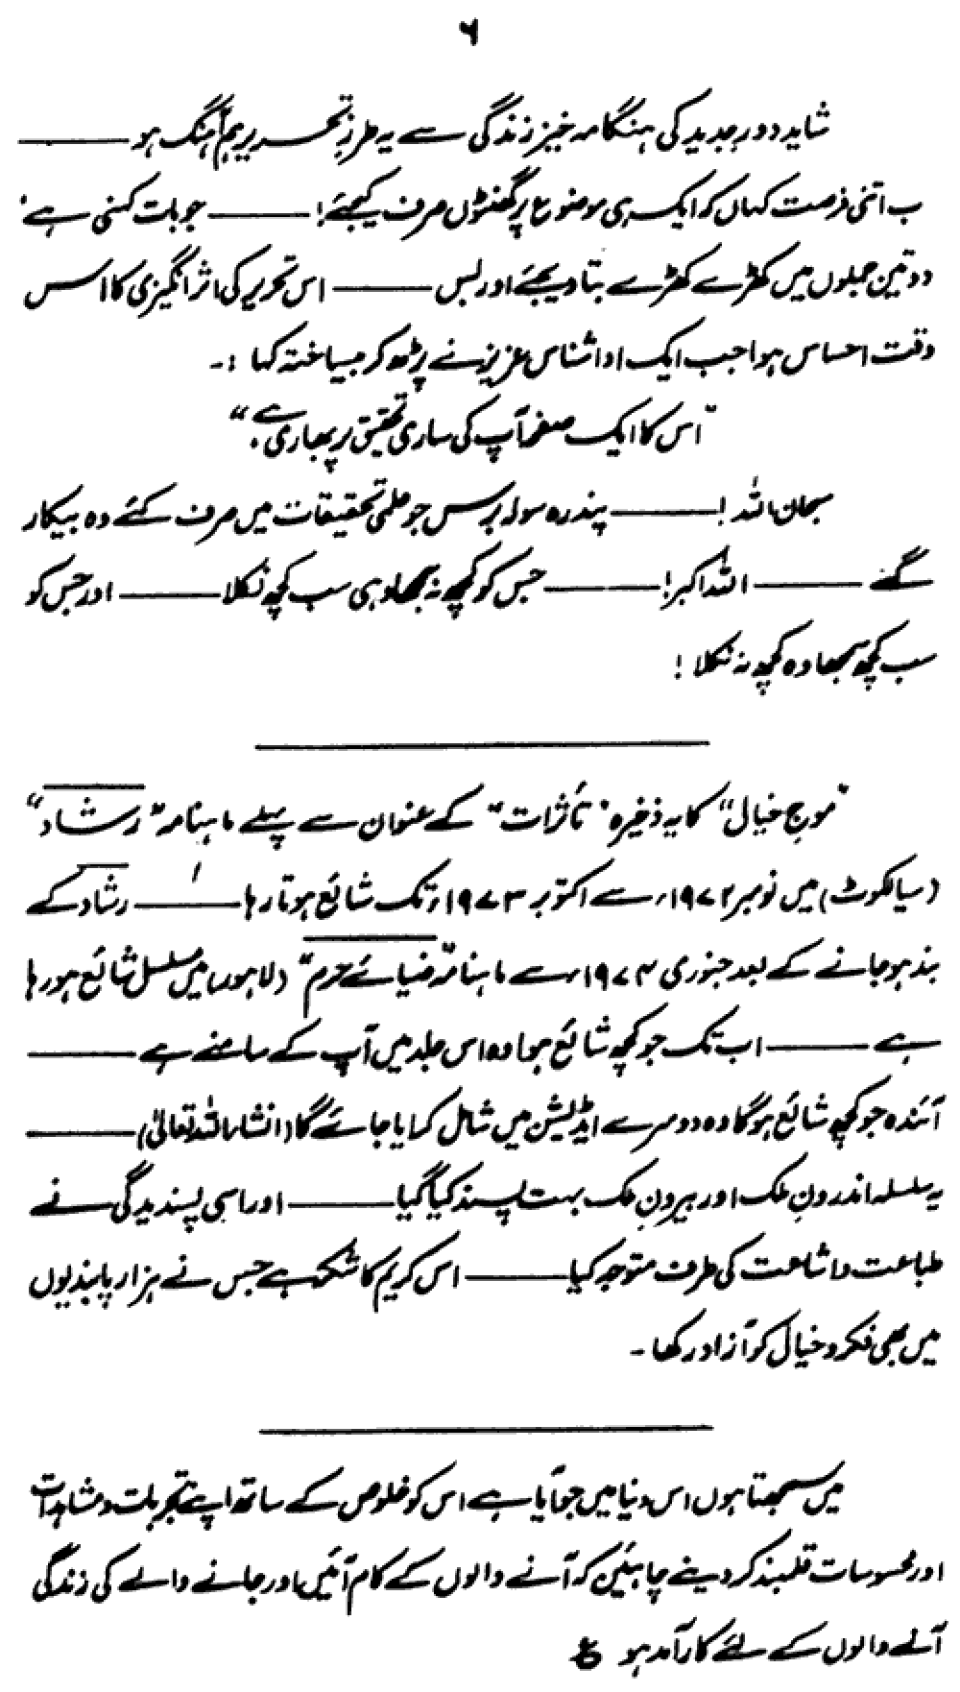 ۶
شاید دورِ جدید کی ہنگامہ خیز زندگی سے یہ طرزِ تحریر ہم آہنگ ہو ———
ب اتنی فرصت کہاں کہ ایک ہی موضوع پر گھنٹوں صرف کیجئے! ——— جو بات کہنی ہے'
دو تین جملوں میں کھڑے کھڑے بتا دیجئے اور بس ——— اس تحریر کی اثر انگیزی کا اس
وقت احساس ہوا جب ایک ادا شناس عزیز نے پڑھ کر بیساختہ کہا :۔
"اس کا ایک صفحہ آپ کی ساری تحقیق پر بھاری ہے۔"
سبحان اللہ! ——— پندرہ سولہ برس جو علمی تحقیقات میں صرف کئے وہ بیکار
گئے ——— اللہ اکبر! ——— جس کو کچھ نہ سمجھا وہی سب کچھ نکلا ——— اور جس کو
سب کچھ سمجھا وہ کچھ نہ نکلا!
"موجِ خیال" کا یہ ذخیرہ "تأثرات" کے عنوان سے پہلے ماہنامہ "رشاد"
(سیالکوٹ) میں نومبر ۱۹۷۲ء سے اکتوبر ۱۹۷۳ء تک شائع ہوتا رہا ——— رشاد کے
بند ہو جانے کے بعد جنوری ۱۹۷۴ء سے ماہنامہ "ضیائے حرم" (لاہور) میں مسلسل شائع ہو رہا
ہے ——— اب تک جو کچھ شائع ہوا وہ اس جلد میں آپ کے سامنے ہے ———
آئندہ جو کچھ شائع ہوگا وہ دوسرے ایڈیشن میں شامل کر لیا جائے گا (انشاء اللہ تعالیٰ) ———
یہ سلسلہ اندرونِ ملک اور بیرونِ ملک بہت پسند کیا گیا ——— اور اسی پسندیدگی نے
طباعت و اشاعت کی طرف متوجہ کیا ——— اس کریم کا شکر ہے جس نے ہزار پابندیوں
میں بھی فکر و خیال کو آزاد رکھا۔
میں سمجھتا ہوں اس دنیا میں جو آیا ہے اس کو خلوص کے ساتھ اپنے تجربات و مشاہدات
اور محسوسات قلمبند کر دینے چاہئیں کہ آنے والوں کے کام آئیں اور جانے والے کی زندگی
آنے والوں کے لئے کارآمد ہو ؏